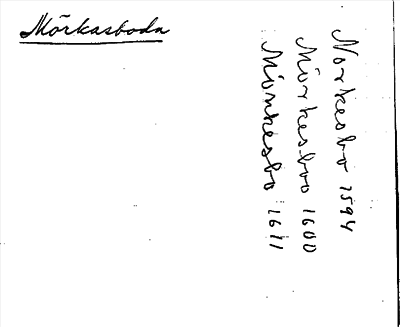 Mörkasboda
Norkesbo 1594
Mörkesboo 1600
Mörkesbo 1611